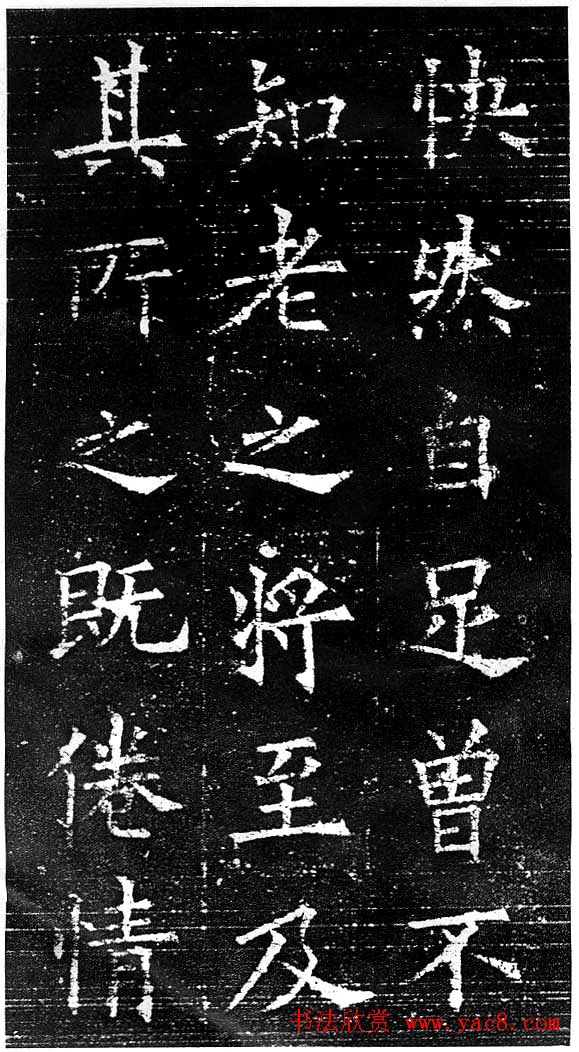 快然自足曽不
知老之將至及
其所之既倦情
书法欣赏 www.yac8.com